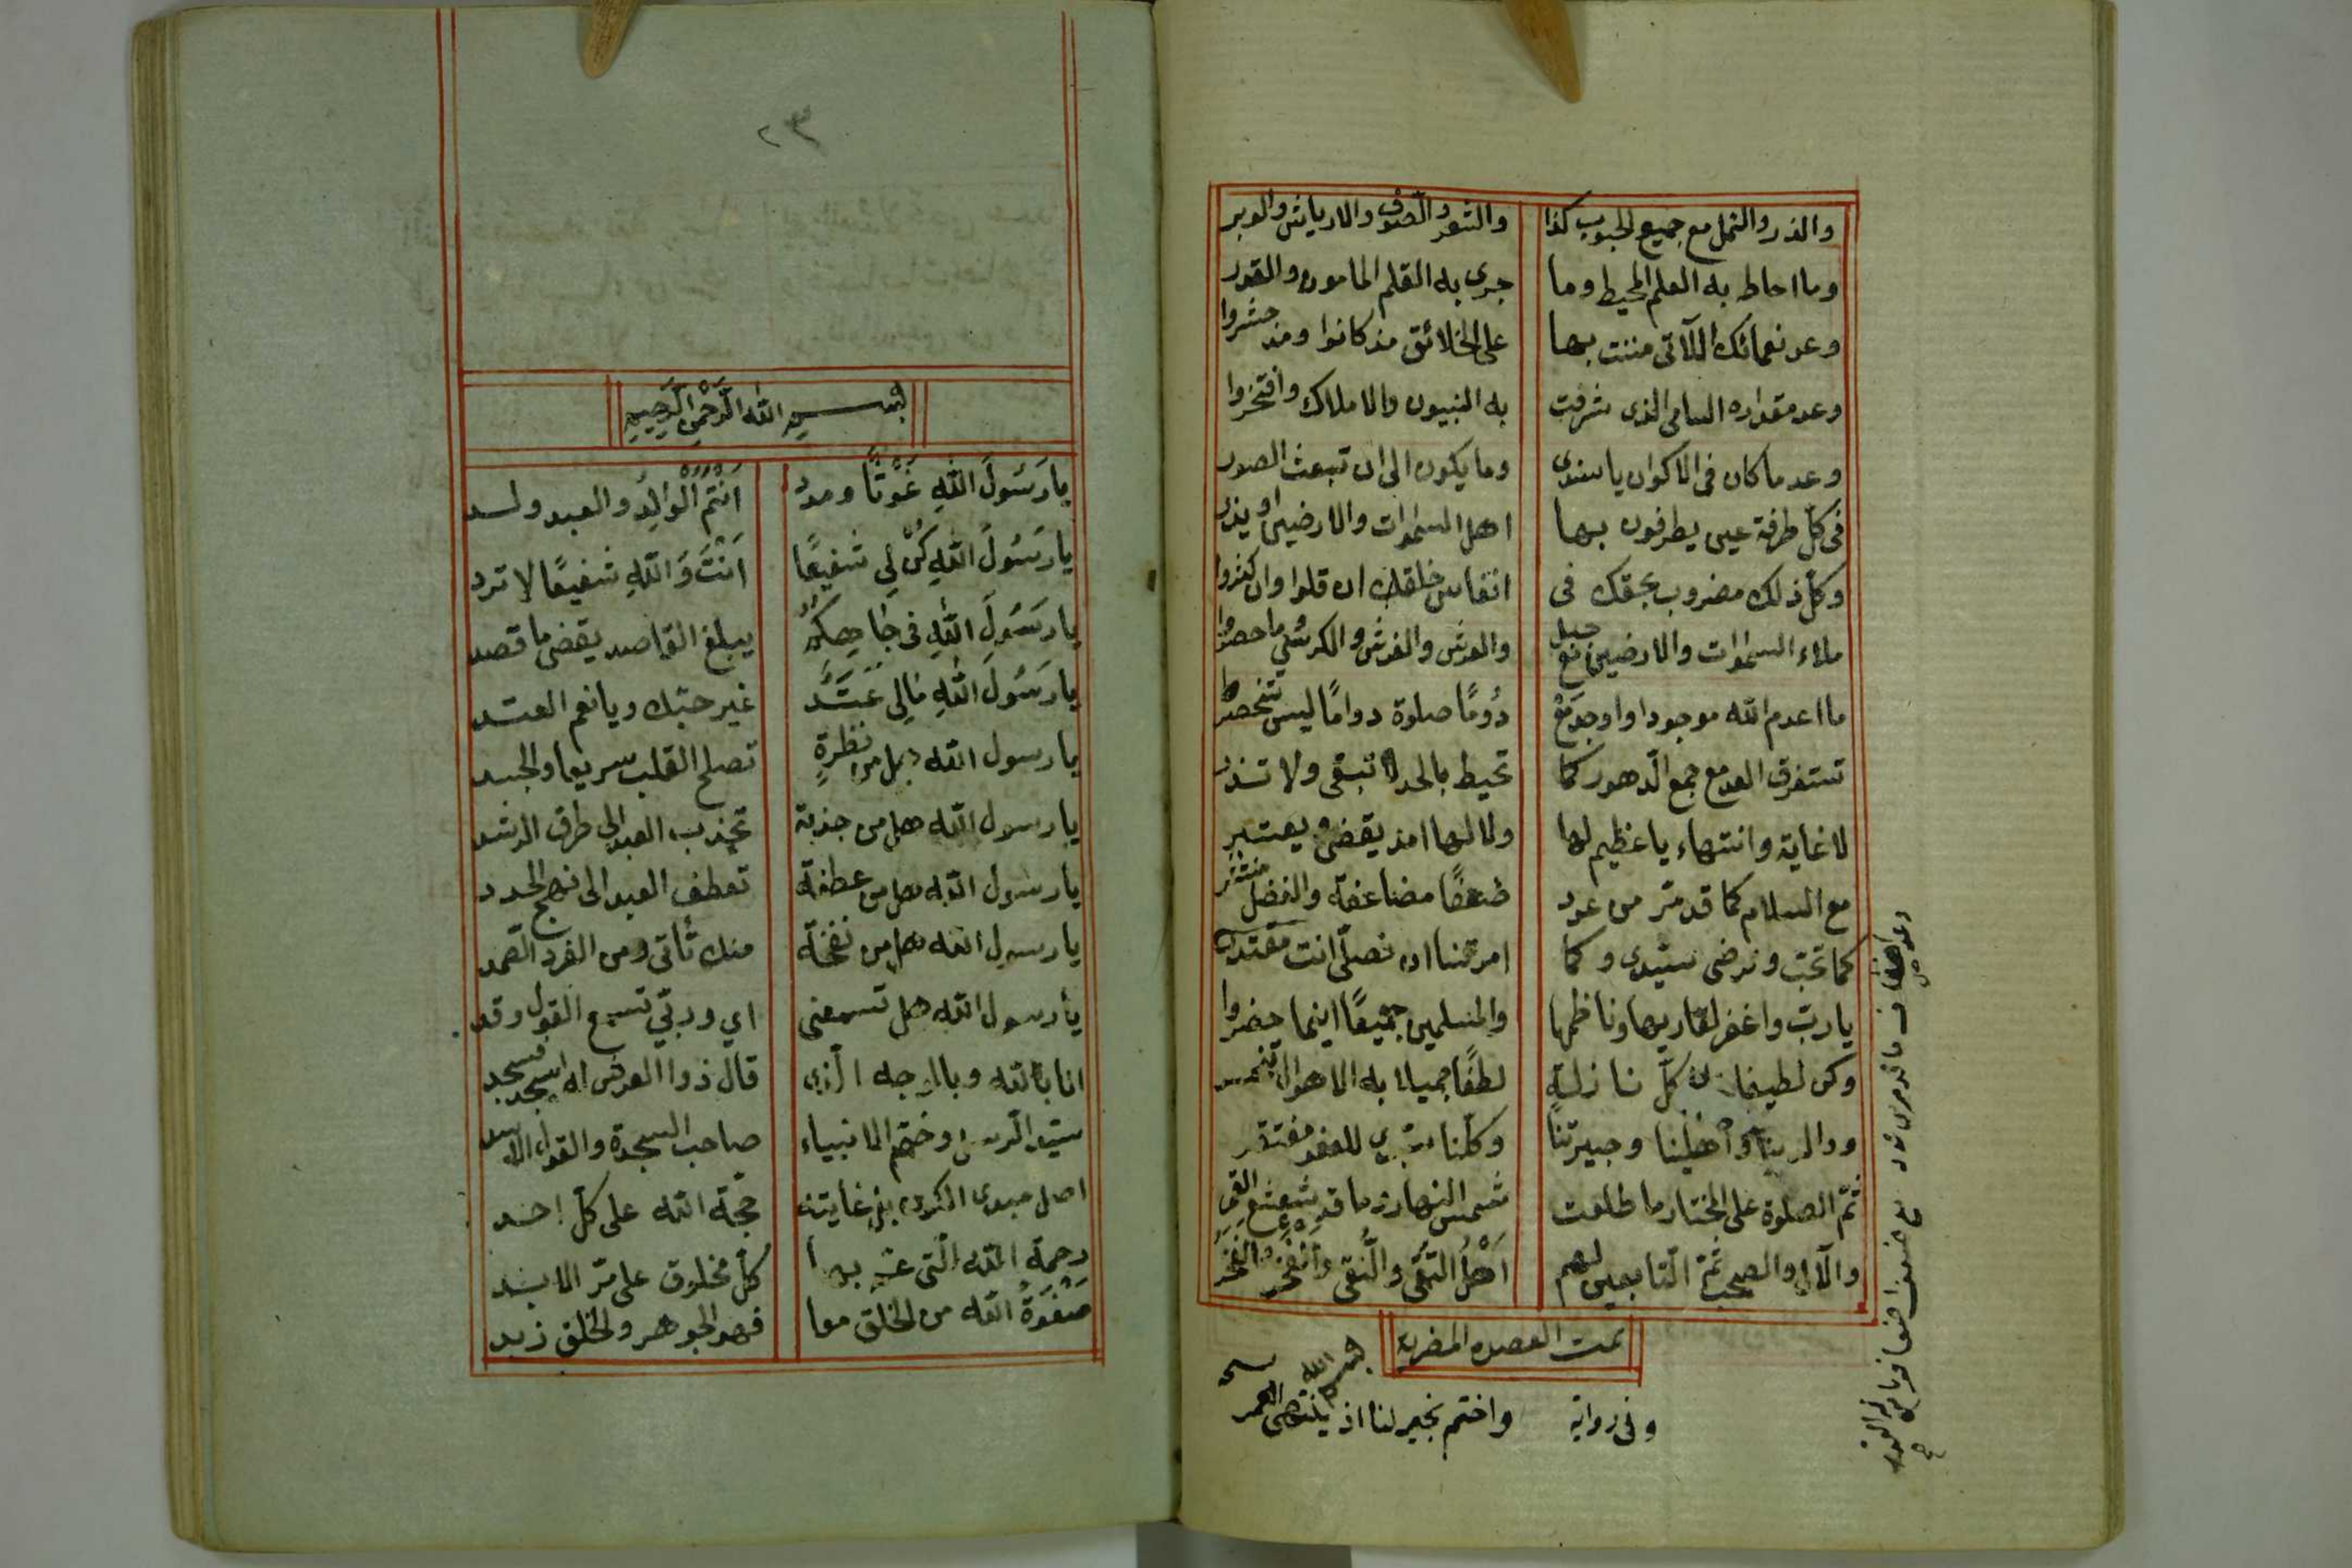 والذر والنمل مع جميع الحبوب كذا والشعر والصوف والارياش والوبر
وما احاط به العلم المحيط وما جرى به القلم المامون والقدر
وعد نعمائك اللآتى مننت بها على الخلائق مذ كانوا ومذ حشروا
وعد مقداره السامى الذى شرفت به النبيون والاملاك وافتخروا
وعد ما كان فى الاكوان يا سندى وما يكون الى ان تبعث الصور
فى كل طرفة عين يطرفون بها اهل السموات والارضين او يذر
وكل ذلك مضروب بحقك فى انفاس خلقك ان قلوا وان كثروا
ملاء السموات والارضين مع جبل والعرش والفرش والكرسى وما حصروا
ما اعدم الله موجودا واوجد مع دوما صلوة دواما ليس تنحصر
تستغرق العد مع جمع الدهور كما تحيط بالحد لا تبقى ولا تذر
لا غاية وانتهاء يا عظيم لها ولا لها امد يقضى ويعتبر
مع السلام كما قد مر من عدد ضعفا مضاعفة والفضل منتشر
كما تحب وترضى سيدى وكما امرتنا ان نصلى انت مقتدر
يا رب واغفر لقاريها وناظمها والمسلمين جميعا اينما حضروا
وكن لطيفا بنا فى كل نازلة لطفا جميلا به الاهوال تنحسر
ووالدينا واهلينا وجيرتنا وكلنا سيدى للعفو مفتقر
ثم الصلوة على المختار ما طلعت شمس النهار وما قد شعشع القمر
والآل والصحب ثم التابعين لهم اهل التقى والنقى
تمت القصيده المضريه
وفى رواية واختم بخير لنا اذ ينتهى العمر
٢٣
بسم الله الرحمن الرحيم
يا رَسُولَ اللهِ غَوْثًا ومدد اَنْتُمُ الْوالِدُ والعبد ولد
يا رَسُولَ اللهِ كُنْ لِي شفيعًا اَنْتَ وَاللهِ شفيعًا لا ترد
يا رَسُولَ اللهِ فى جَاهِكُمْ يبلغ القاصد يقضى ما قصد
يا رَسُولَ اللهِ مَالِى عَتَد غير حبك ويا نعم العتد
يا رسول الله هل من نظرةٍ تصلح القلب سريعا والجسد
يا رسول الله هل من جذبة تجذب العبد الى طرق الرشد
يا رسول الله هل من عطفة تعطف العبد الى نهج الجدد
يا رسول الله هل من نفحة منك تأتى ومن الفرد الصمد
يا رسول الله هل تسمعنى اي وربي تسمع القول وقد
انا بالله وبالوجه الذى قال ذوا العرش له اسجد فسجد
سيد الرسل وختم الانبياء صاحب السجدة والقول الاسد
اصل مبدى الكون بل غايته حجة الله على كل احد
رحمة الله التى عم بها كل مخلوق على مر الابد
صَفْوَةُ الله من الخلق معا فهو الجوهر والخلق زبد